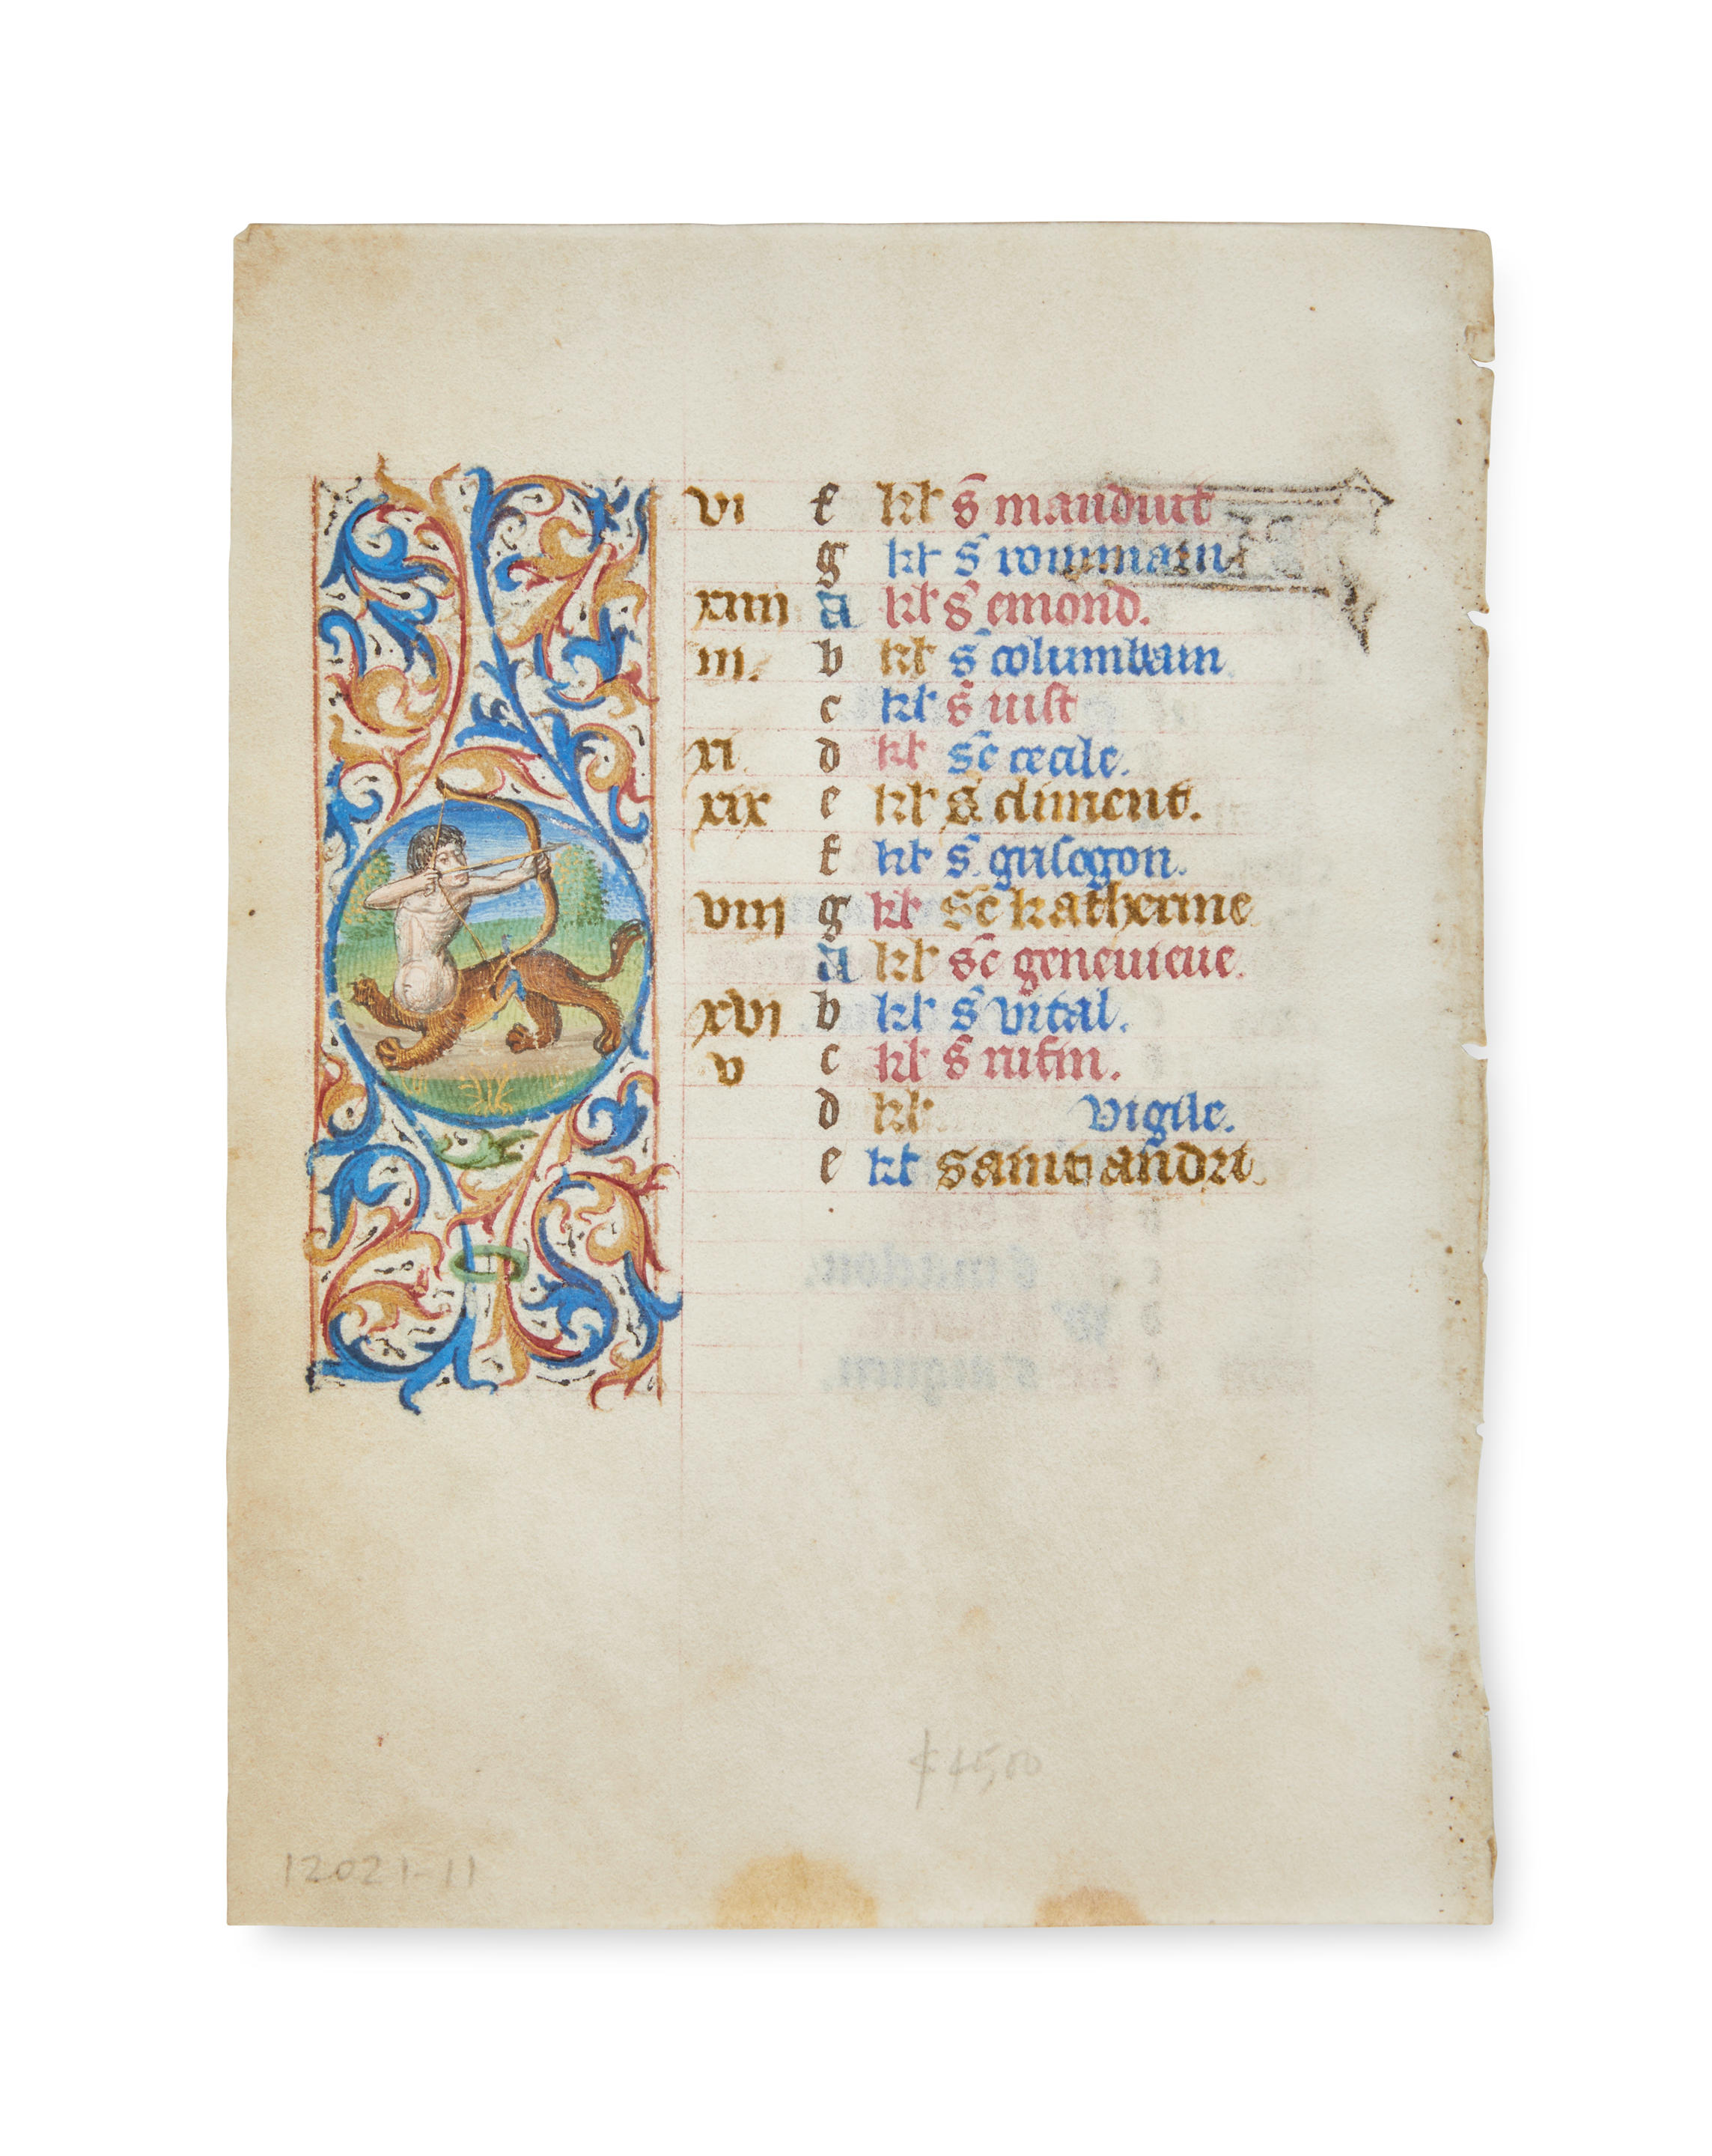 vi f kl s̄ mauduit
g kl s̄ rommain
xiiii A kl s̄ emond.
iii. b kl s̄ columbain
c kl s̄ uist
xi d kl sē cecile.
xix e kl s̄ climent.
f kl s̄ grisogon.
viii g kl sē katherine
A kl sē geneuieue.
xvi b kl s̄ vital.
v c kl s̄ rufin.
d kl vigile.
e kl saint andri.
12021-11